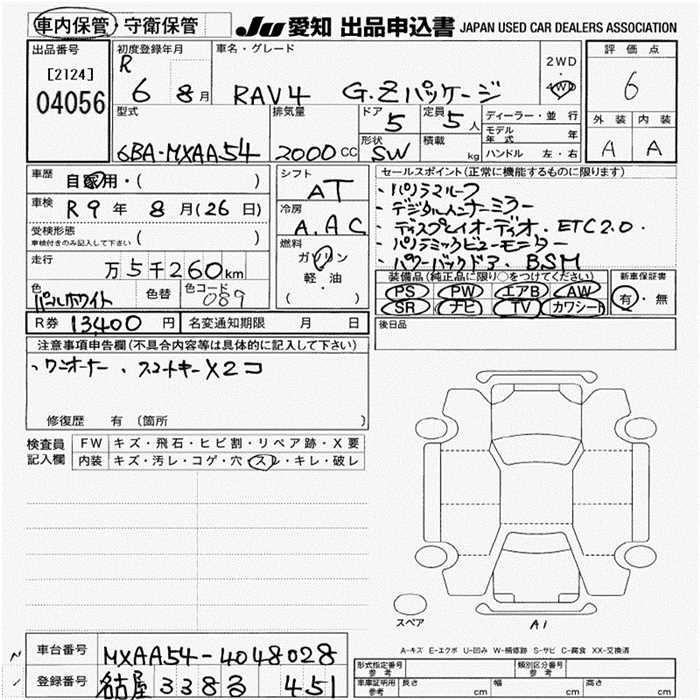 車内保管・守衛保管 JU 愛知 出品申込書 JAPAN USED CAR DEALERS ASSOCIATION
出品番号 [2124] 04056
初度登録年月 R 6 8月
車名・グレード RAV4 G.Zパッケージ
2WD・4WD
評価点 6
外装 内装
A A
型式 6BA-MXAA54
排気量 2000cc
ドア 5
形状 SW
定員 5人
積載 kg
ディーラー・並行
モデル年式 年
ハンドル 左・右
車歴 自家用・( )
車検 R9年8月(26日)
受検形態 車検付きのみ記入して下さい ( )
走行 万5千260km
色 パールホワイト 色替 色コード 089
R券 13400円 名変通知期限 月 日
シフト AT
冷房 A.AC
燃料 ガソリン
軽・油
( )
セールスポイント(正常に機能するものに限ります)
・パノラマルーフ
・デジタルインナーミラー
・ディスプレイオーディオ. ETC2.0.
・パノラミックビューモニター
・パワーバックドア. BSM
装備品(純正品に限り○をつけてください)
PS PW エアB AW
SR ナビ TV カワシート
新車保証書
有・無
後日品
注意事項申告欄(不具合内容等は具体的に記入して下さい)
・ワンオーナー ・スマートキーX2コ
修復歴 有 〔箇所
検査員記入欄
FW キズ・飛石・ヒビ割・リペア跡・X要
内装 キズ・汚レ・コゲ・穴・スレ・キレ・破レ
スペア
A1
A-キズ E-エクボ U-凹み W-補修跡 S-サビ C-腐食 XX-交換済
車台番号 MXAA54-4048028
登録番号 名古屋 338 る 451
形式指定番号 参考
類別区分番号 参考
車庫証明用 参考 長さ cm 幅 cm 高さ cm